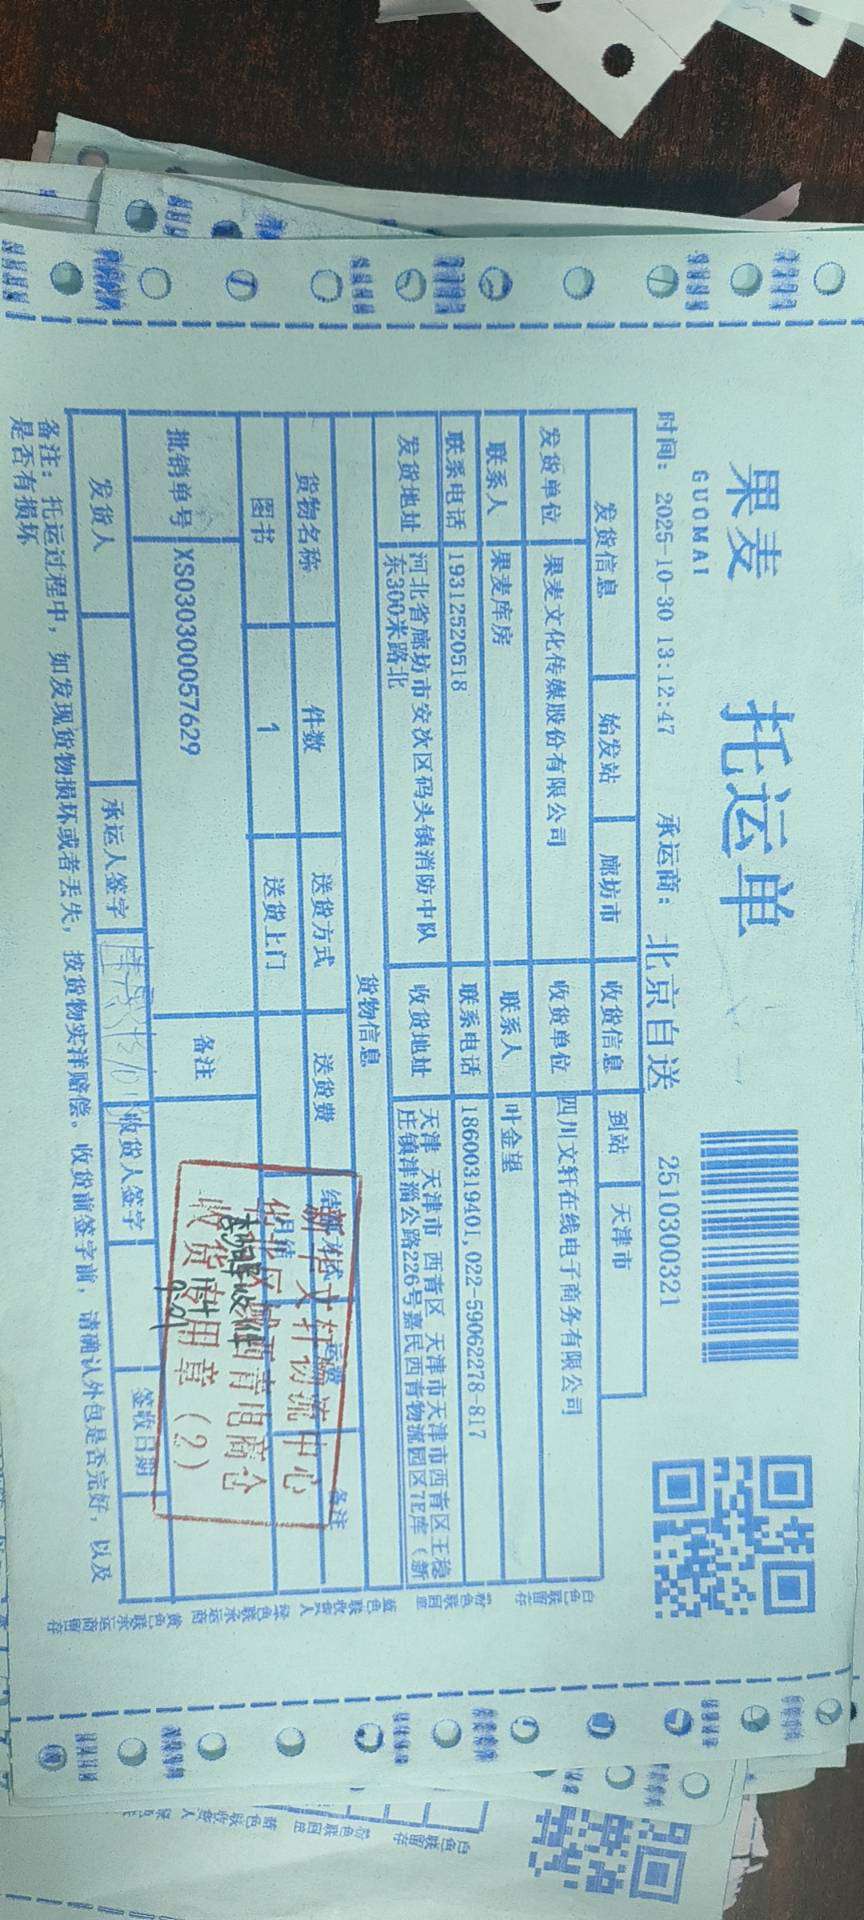 果麦
GUOMAI
托运单
时间: 2025-10-30 13:12:47 承运商: 北京自送 2510300321
发货信息 始发站 廊坊市 收货信息 到站 天津市
发货单位 果麦文化传媒股份有限公司 收货单位 四川文轩在线电子商务有限公司
联系人 果麦库房 联系人 叶金望
联系电话 19312520518 联系电话 18600319401,022-59062278-817
发货地址 河北省廊坊市安次区码头镇消防中队 收货地址 天津 天津市 西青区 天津市天津市西青区王稳
东300米路北 庄镇津淄公路226号嘉民西青物流园区7E库（新
货物信息
货物名称 件数 送货方式 送货费 备注
图书 1 送货上门
批销单号 XS030300057629 备注
发货人 承运人签字 收货人签字 签收日期
备注: 托运过程中, 如发现货物损坏或者丢失, 按货物实洋赔偿。收货前签字前, 请确认外包是否完好, 以及
是否有损坏
新华文轩物流中心
华北区域西青电商仓
收货专用章（2）
白色联留存
粉色联回单
蓝色联收货人
绿色联承运商
黄色联承运商留存
白色联留存
粉色联回单
蓝色联收货人